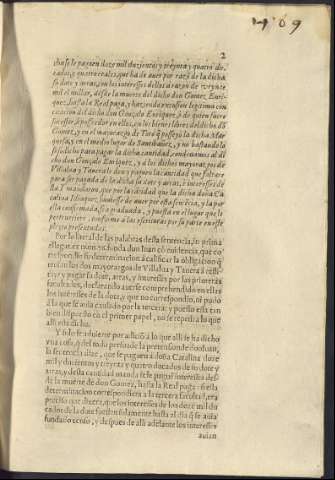 409
2
cha se le paguen doze mil duzientos y treynta y quatro du-
cados, y quatro reales, que ha de auer por razō de la dicha
su dote y arras, con los intereses dellos a razon de veynte
mil el millar, desde la muerte del dicho don Gomez Enri-
quez, hasta la Real paga, y haziendo excusion legitima con
citacion del dicho don Gonçalo Enriquez, o de quien fuere
sucessor, o posseedor en ellos, en los bienes libres del dicho dō
Gomez, y en el mayorazgo de Toro q̄ posseyò la dicha Mar-
quesa, y en el medio lugar de Santibañez, y no bastando lo
susodicho para pagar la dicha cantidad, condenamos al di-
cho don Gonçalo Enriquez, y a los dichos mayorazgos de
Villalua y Tauera le den y paguen la cantidad que faltare
para ser pagada de la dicha su dote y arras, e intereses de-
lla. Y mandamos, que por la cãtidad que la dicha doña Ca-
talina Idiaquez, huuiesse de auer por esta sentēcia, y la por
ella confirmada, sea graduada, y puesta en el lugar que le
perteneciere, conforme a las escrituras por su parte en este
pleyto presentadas.
Por lo literal de las palabras desta sentencia, se prime-
ro llega ser mas vencida don Iuan cō euidencia, que co-
rresponde su determinacion a calificar la obligaciō q̄
tenian los dos mayorazgos de Villalua y Tauera à resti-
tuyr y pagar su dote, arras, y intereses por las primeras
facultades, declarando auerse comprehendido en ellas
los intereses de la dote, y que no correspondio, ni pudo
a la que se auia excluido por la tercera: y puesto està tan
bien dispuesto en el primer papel, no se repetirà lo que
alli està dicho.
Y solo se aduierte por adiciō a lo que alli se ha dicho
vna cosa, q̄ del todo persuade la pretension de dō Iuan,
la sentencia dize, que se paguen a doña Catalina doze
mil y duzientos y treynta y quatro ducados de su dote y
arras, y desta cantidad manda se le paguē intereses des-
de la muerte de don Gomez, hasta la Real paga: si esta
determinacion correspondiera a la tercera facultad, era
preciso que dixera, que los intereses de los doze mil du-
cados de la dote fuessen solamente hasta el dia q̄ se auia
fundado censo, y despues de alli adelante los intereses
auian